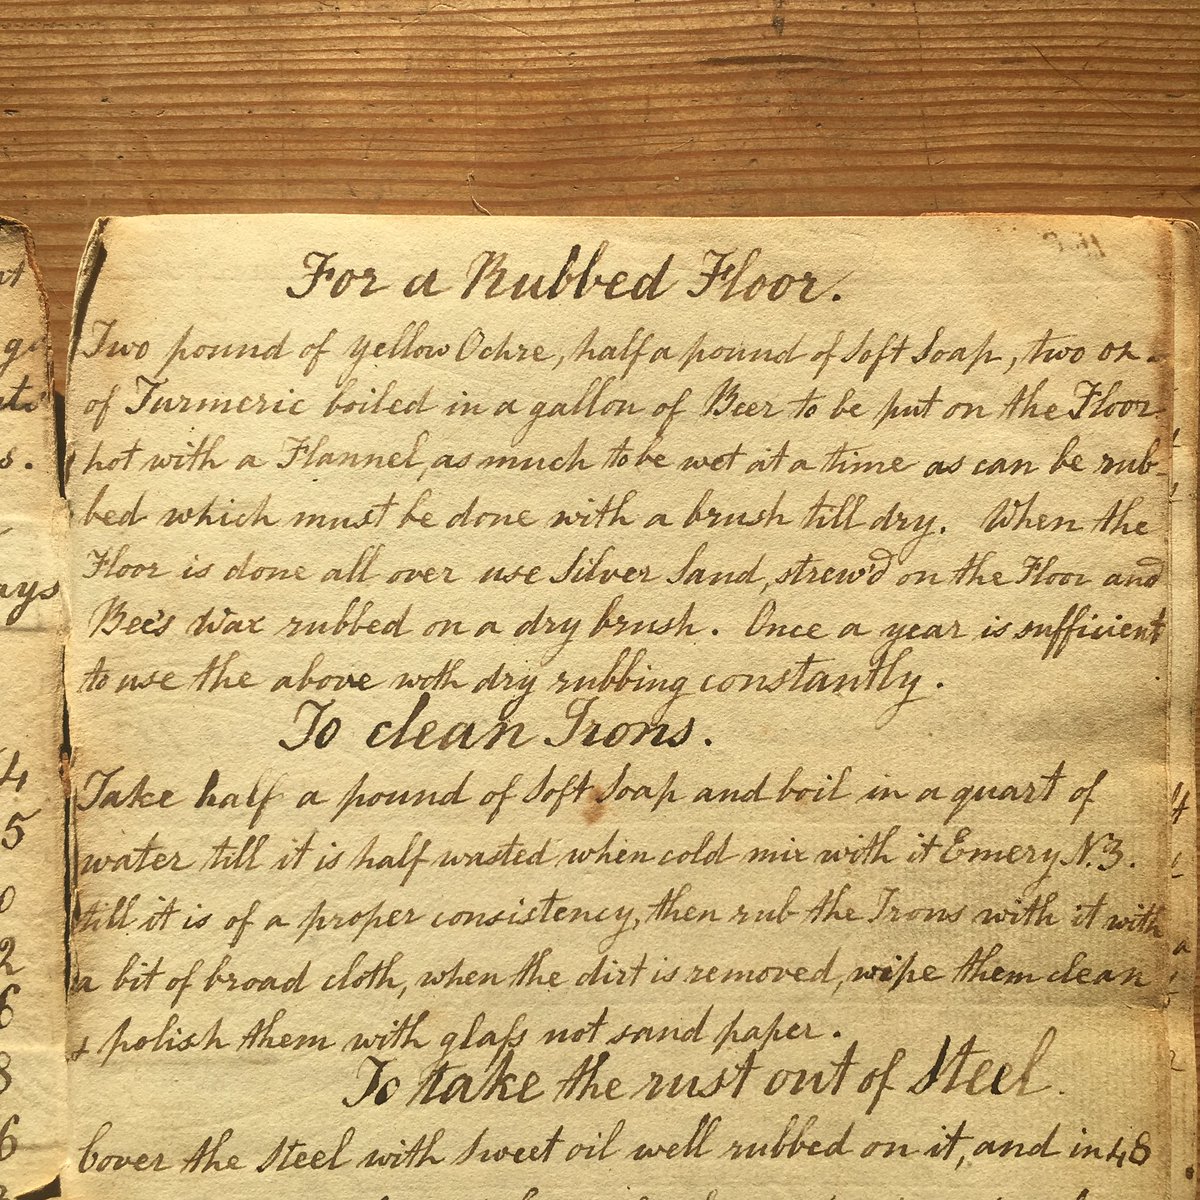 For a Rubbed Floor.
Two pound of yellow Ochre, half a pound of Soft Soap, two oz.
of Turmeric boiled in a gallon of Beer to be put on the Floor
hot with a Flannel, as much to be wet at a time as can be rub-
bed which must be done with a brush till dry. When the
Floor is done all over use Silver Sand, strew'd on the Floor and
Bee's Wax rubbed on a dry brush. Once a year is sufficient
to use the above with dry rubbing constantly.
To clean Irons.
Take half a pound of Soft Soap and boil in a quart of
water till it is half wasted when cold mix with it Emery N.3.
till it is of a proper consistency, then rub the Irons with it with
a bit of broad cloth, when the dirt is removed, wipe them clean
& polish them with glaſs not sand paper.
To take the rust out of Steel.
Cover the Steel with Sweet oil well rubbed on it, and in 48